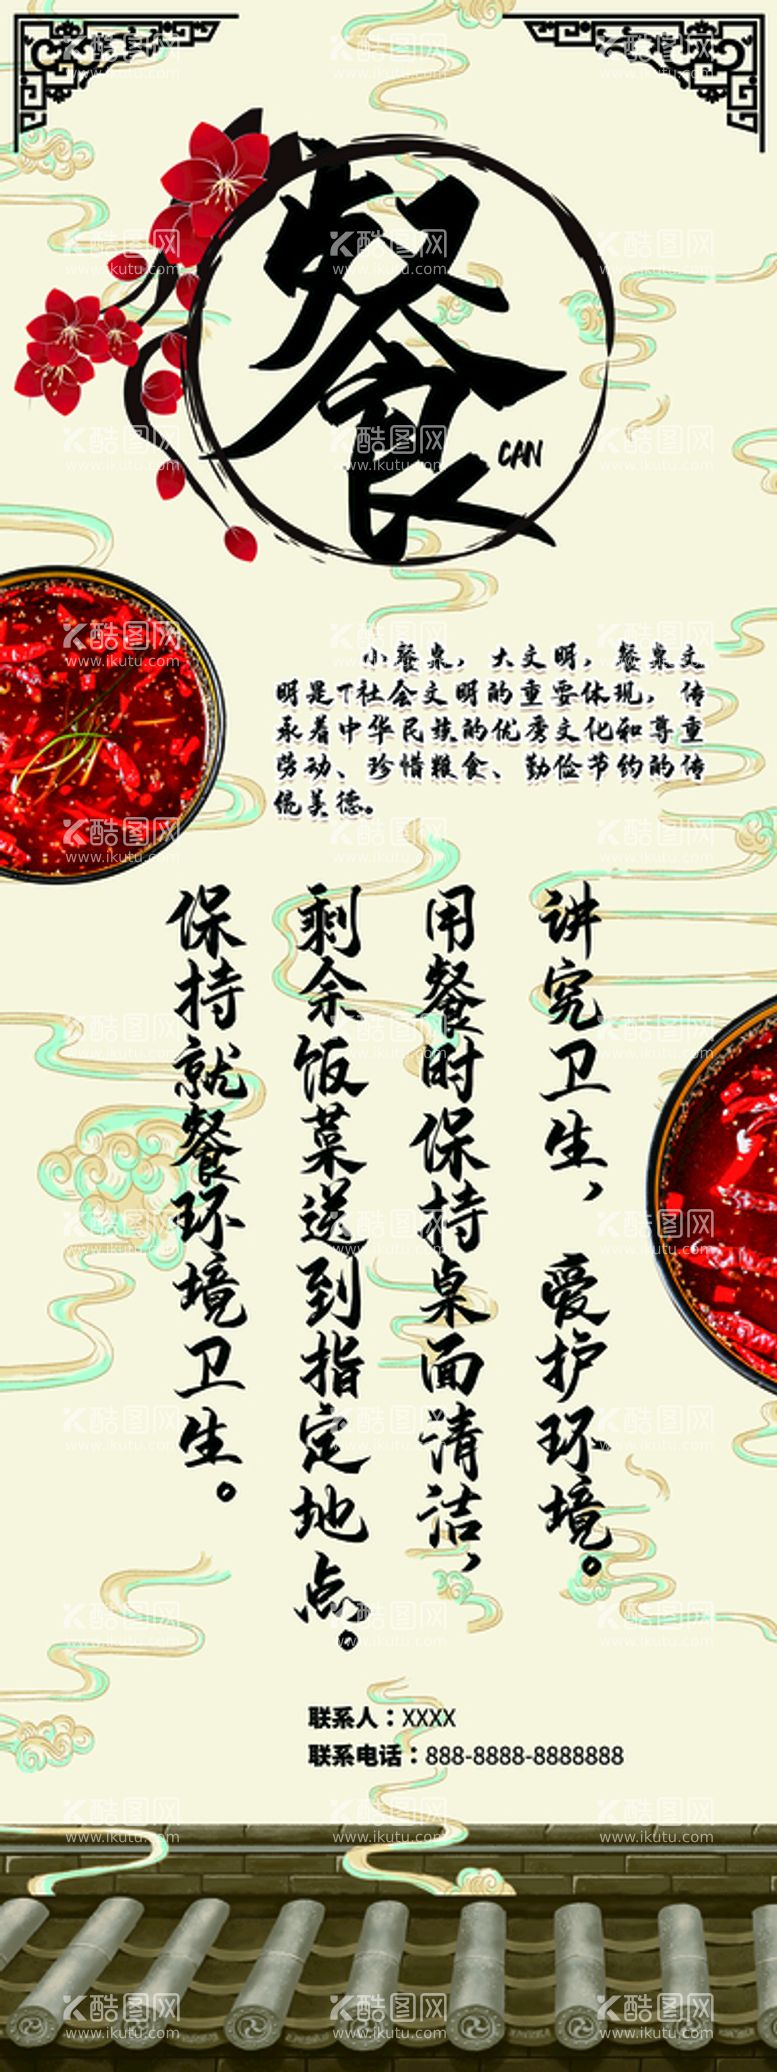 餐
CAN
小餐桌，大文明，餐桌文
明是T社会文明的重要体现，传
承着中华民族的优秀文化和尊重
劳动、珍惜粮食、勤俭节约的传
统美德。
讲究卫生，爱护环境。
用餐时保持桌面清洁，
剩余饭菜送到指定地点。
保持就餐环境卫生。
联系人：XXXX
联系电话：888-8888-8888888
酷图网
www.ikutu.com